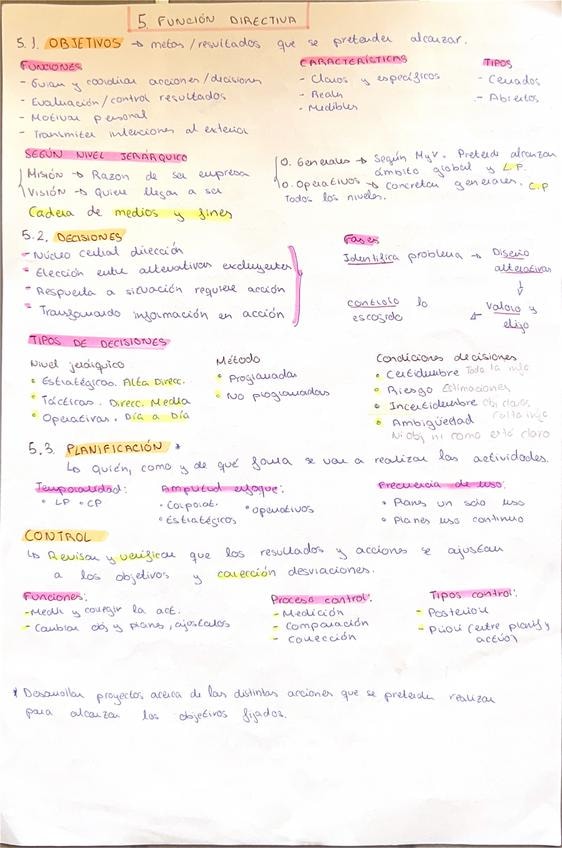 5. FUNCIÓN DIRECTIVA
5.1. OBJETIVOS → metas/resultados que se pretender alcanzar.
FUNCIONES
- Guiar y coordinar acciones/decisiones
- Evaluación/control resultados
- Motivar personal
- Transmitir intenciones al exterior
CARACTERÍSTICAS
- Claros y específicos
- Reales
- Medibles
TIPOS
- Cerrados
- Abiertos
SEGÚN NIVEL JERÁRQUICO
Misión → Razon de ser empresa
Visión → Quiere llegar a ser
Cadena de medios y fines
O. Generales → Según MyV. Pretende alcanzar
ámbito global y LP.
O. Operativos → Concretan generales. CP
Todos los niveles.
5.2. DECISIONES
- Núcleo central dirección
- Elección entre alternativas excluyentes
- Respuesta a situación requiere acción
- Transformando información en acción
Fases
Identifica problema → Diseño
alternativas
↓
Valoro y
elijo
←
controlo lo
escogido
TIPOS DE DECISIONES
Nivel jerárquico
• Estratégicas. Alta Direcc.
• Tácticas. Direcc. Media
• Operativas. Día a Día
Método
• Programadas
• No programadas
Condiciones decisiones
• Certidumbre Toda la info
• Riesgo Estimaciones
• Incertidumbre Obj claros
Falta info
• Ambigüedad
Ni obj ni como está claro
5.3. PLANIFICACIÓN *
↳ quién, como y de qué forma se van a realizar las actividades.
Temporalidad:
• LP • CP
Amplitud enfoque:
• Corporat.
• Estratégicos
• operativos
Frecuencia de uso:
• Planes un solo uso
• Planes uso continuo
CONTROL
↳ Revisar y verificar que los resultados y acciones se ajustan
a los objetivos y corrección desviaciones.
Funciones:
- Medir y corregir la act.
- Cambiar obj y planes, ajustados
Proceso control:
- Medición
- Comparación
- Corrección
Tipos control:
- Posteriori
- Priori (entre planif y
actúo)
* Desarrollar proyectos acerca de las distintas acciones que se pretende realizar
para alcanzar los objetivos fijados.